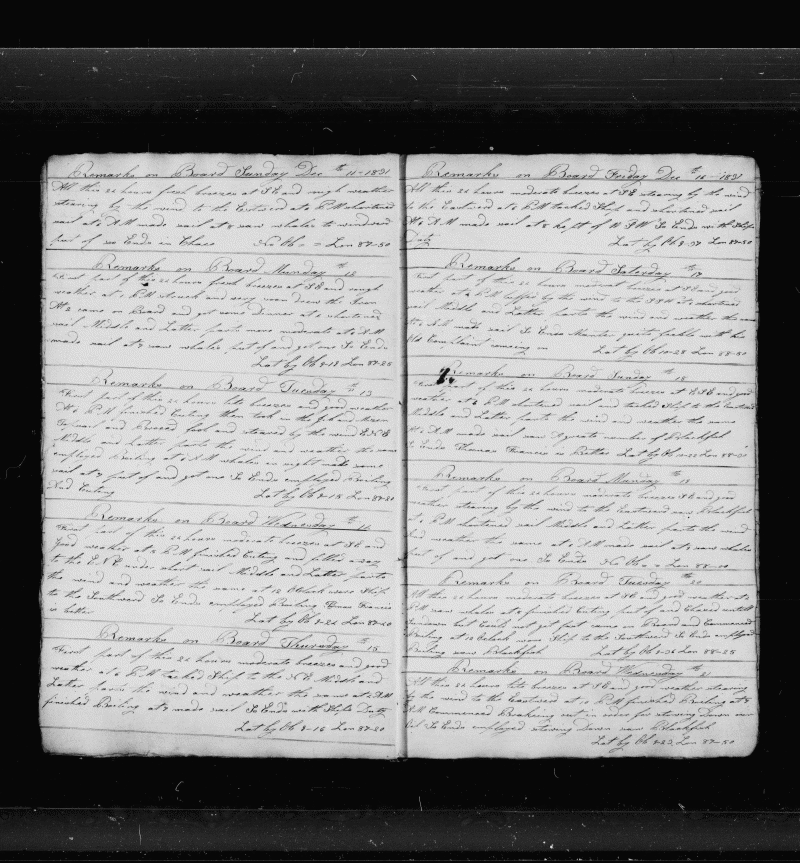 Remarks on Board Sunday Dec th 11-1831
All this 24 hours fresh breezes at SE and rough weather
steering by the wind to the Eastward at 6 PM shortened
sail at 6 AM made sail at 8 saw whales to windward
part of So Ends in Chace No Ob Lon 88-50
Remarks on Board Monday th 12
First part of this 24 hours fresh breezes at SE and rough
weather at 1 PM struck and very soon drew the Iron
At 2 came on Board and got some Dinner at 6 shortened
sail Middle and Latter parts more moderate at 6 AM
made sail at 8 saw whales put of and got one So Ends
Lat by Ob 2-13 Lon 88-25
Remarks on Board Tuesday th 13
First part of this 24 hours lite breezes and good weather
At 6 PM finished Cuting then took in the
Topsail and foresail and steared by the wind ENE
Middle and Latter parts the wind and weather the same
employed Boiling at 6 AM whales in sight made some
sail at 7 put of and got one So Ends employed Boiling
And Cuting Lat by Ob 2-18 Lon 88-20
Remarks on Board Wednesday th 14
First part of this 24 hours moderate breezes at SE and
good weather at 2 PM finished Cuting and filled away
to the ENE under short sail Middle and Latter parts
the wind and weather the same at 12 Oclock wore Ship
to the Southward So Ends employed Boiling Francis
is better Lat by Ob 2-24 Lon 88-20
Remarks on Board Thursday th 15
First part of this 24 hours moderate breezes and good
weather at 6 PM tacked Ship to the NE Middle and
Latter parts the wind and weather the same at 2 AM
finished Boiling at 7 made sail So Ends with Ships Duty
Lat by Ob 2-16 Lon 88-20
Remarks on Board Friday Dec th 16-1831
All this 24 hours moderate breezes at SE stearing by the wind
to the Eastward at 6 PM tacked Ship and shortened sail
At 6 AM made sail at 8 kept of So Ends with Ships
Duty Lat by Ob 2-37 Lon 88-50
Remarks on Board Saturday th 17
First part of this 24 hours moderat breezes at SE and good
weather at 4 PM luffed by the wind to the at 6 shortened
sail Middle and Latter parts the wind and weather the same
to 6 AM made sail So Ends Manter quite feable with his
Old Complaint remaing on Lat by Ob 10-28 Lon 88-50
Remarks on Board Sunday th 18
First part of this 24 hours moderate breezes at ESE and good
weather at 6 PM shortened sail and tacked Ship to the Eastward
Middle and Latter parts the wind and weather the same
At 6 AM made sail saw a great number of Blackfish
So Ends Thomas Francis is Better Lat by Ob Lon 88-20
Remarks on Board Monday th 19
First part of this 24 hours moderate breezes at SE and good
weather stearing by the wind to the Eastward saw Blackfish
at 6 PM shortened sail Middle and Latter parts the wind
and weather the same at 6 AM made sail at 8 saw whales
put of and got one So Ends No Ob Lon 88-00
Remarks on Board Tuesday th 20
All this 24 hours moderate breezes at SE and good weather at
PM saw whales at 5 finished Cuting put of and Chaced untill
Sundown but Could not get fast came on Board and Commenced
Boiling at 10 Oclock wore Ship to the Southward So Ends employed
Boiling saw Blackfish Lat by Ob 2-36 Lon 88-25
Remarks on Board Wednesday th 21
All this 24 hours lite breezes at SE and good weather stearing
by the wind to the Eastward at 10 PM finished Boiling at 8
AM Commenced Breaking out in order for stowing Down our
Oil So Ends employed stowing Down saw Blackfish
Lat by Ob 2-23 Lon 88-50